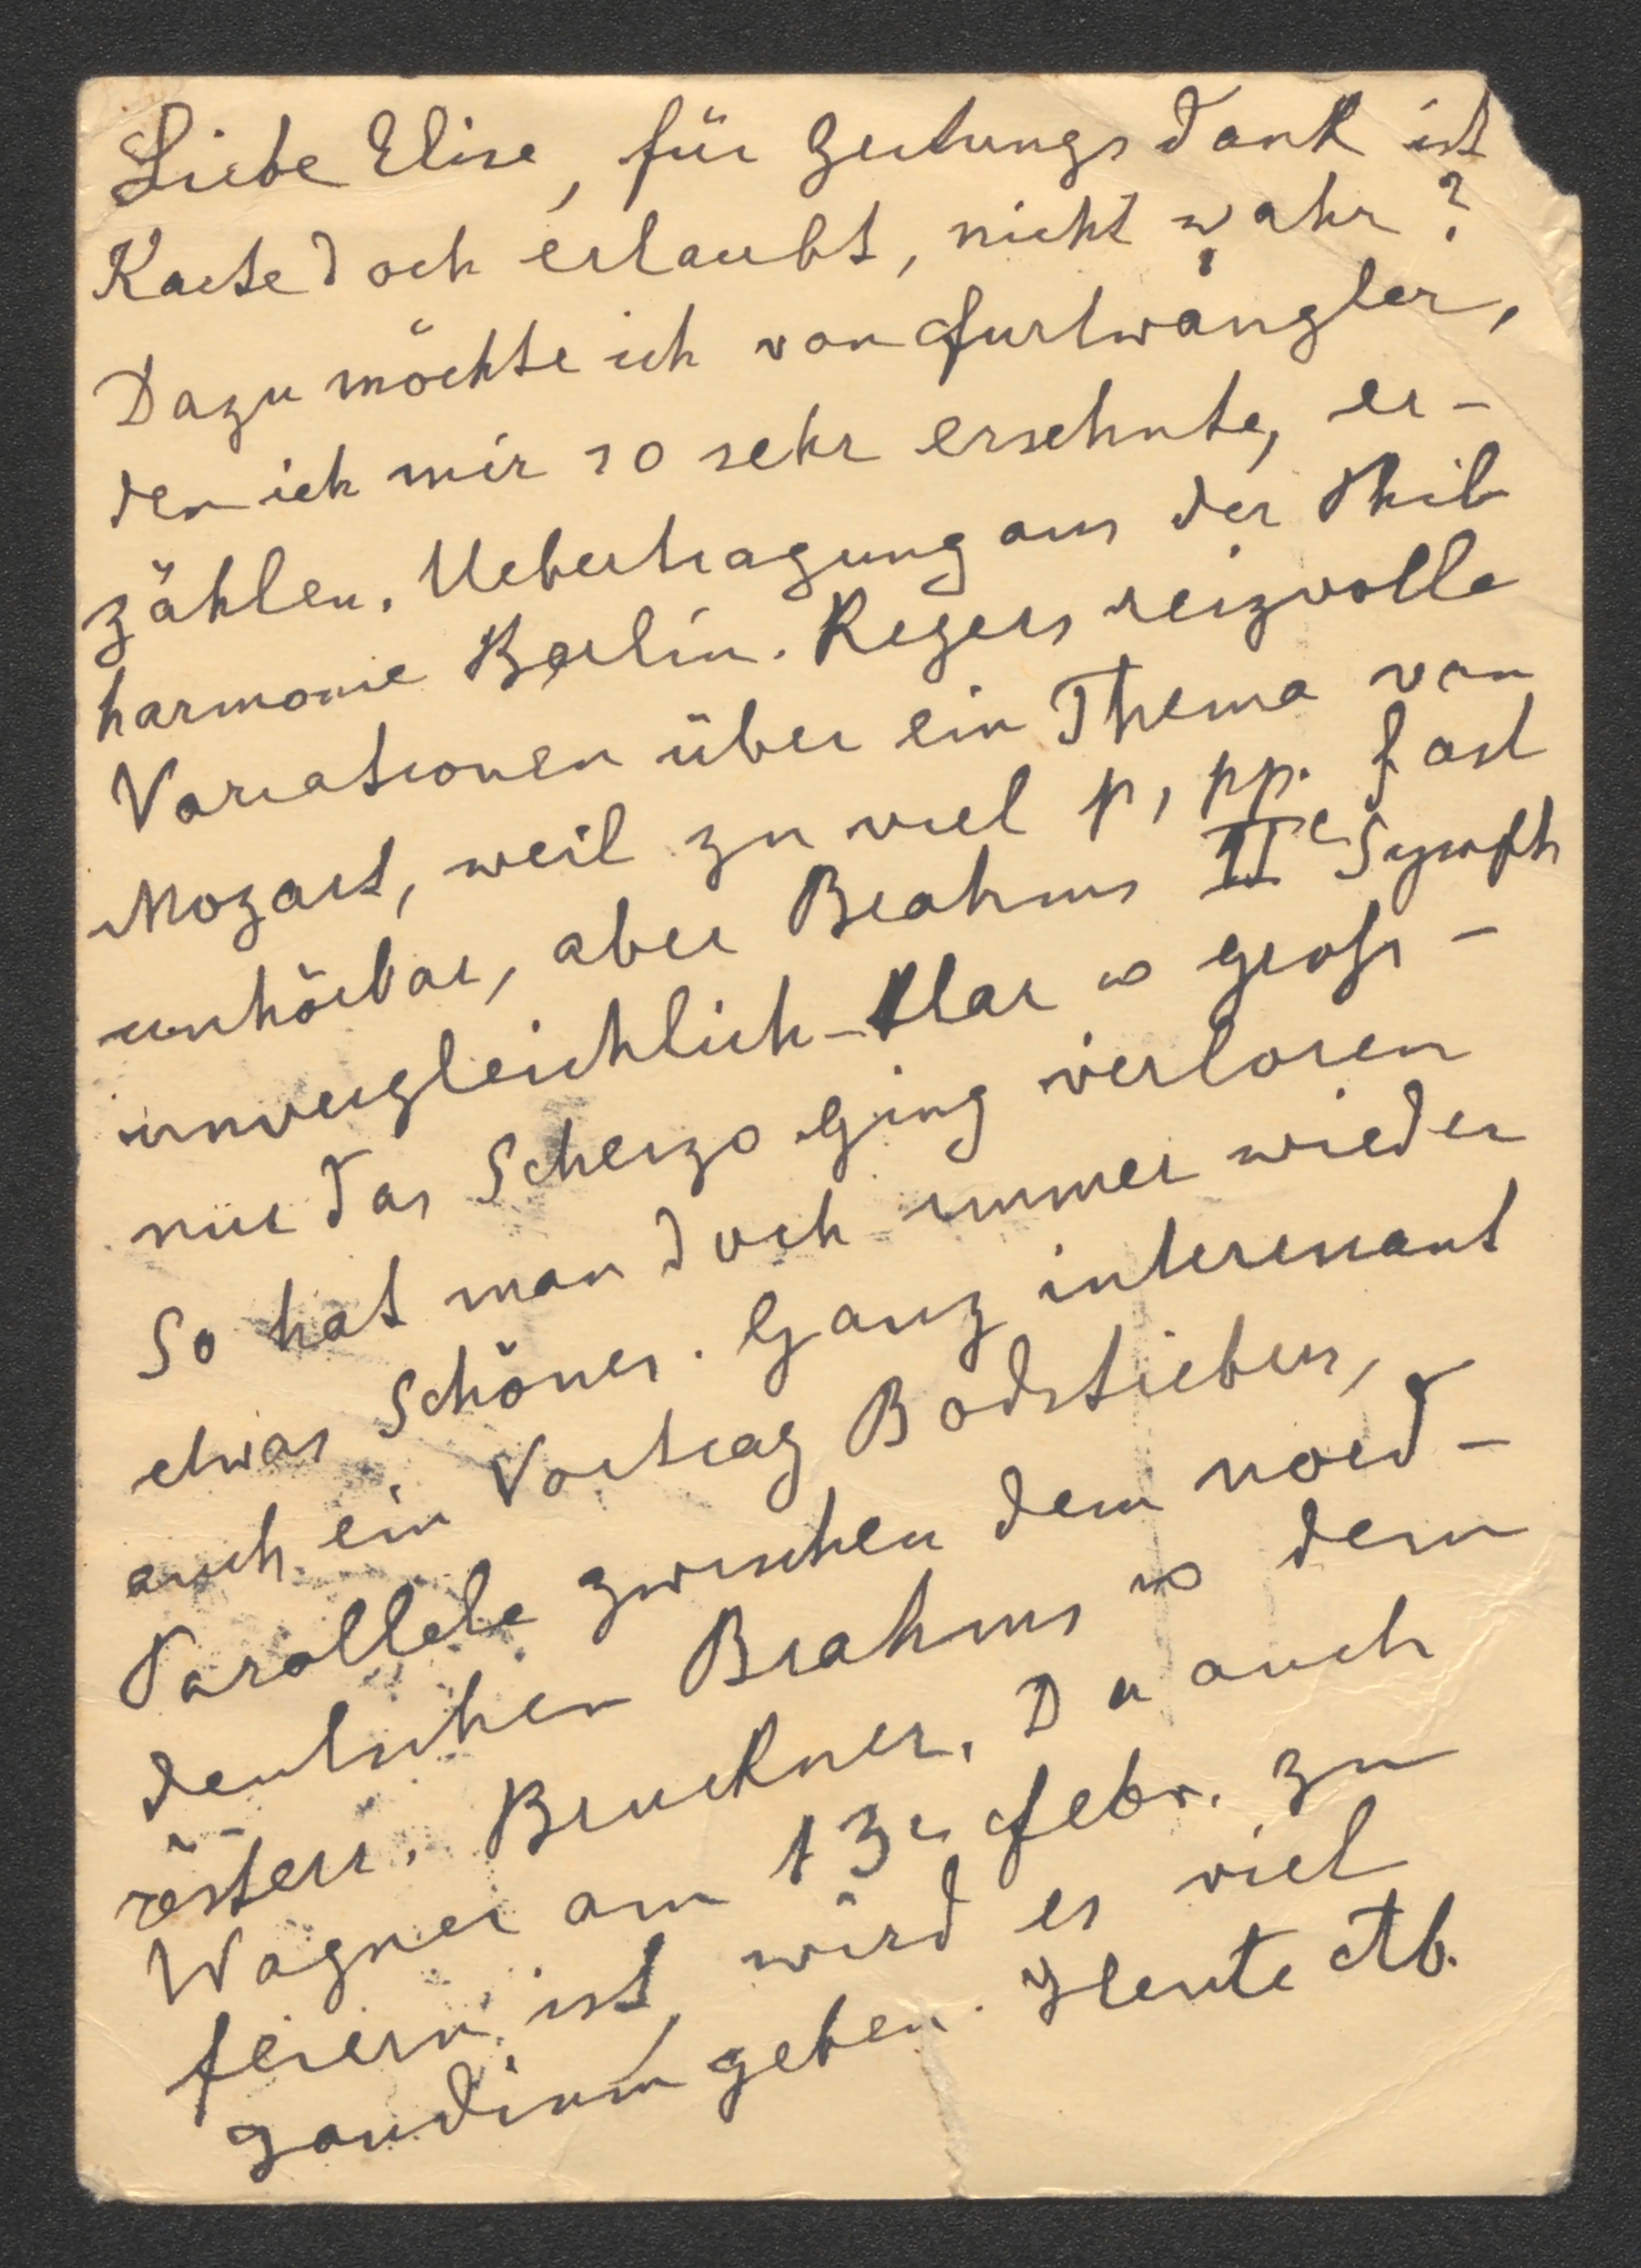 Liebe Elise, für Zeitungsdank ist
Karte doch erlaubt, nicht wahr?
Dazu möchte ich von Furtwängler,
den ich mir so sehr ersehnte, er-
zählen. Uebertragung aus der Phil
harmonie Berlin. Regers reizvolle
Variationen über ein Thema von
Mozart, weil zu viel p, pp. fast
unhörbar, aber Brahms IIe Symph
unvergleichlich-klar u groß-
nur das Scherzo ging verloren
So hat man doch immer wieder
etwas Schönes. Ganz interessant
auch ein Vortrag Bodstiebers,
Parallele zwischen dem nord-
deutschen Brahms u dem
österr. Bruckner. Da auch
Wagner am 13. Febr. zu
feiern ist, wird es viel
gaudium geben. Heute Ab.